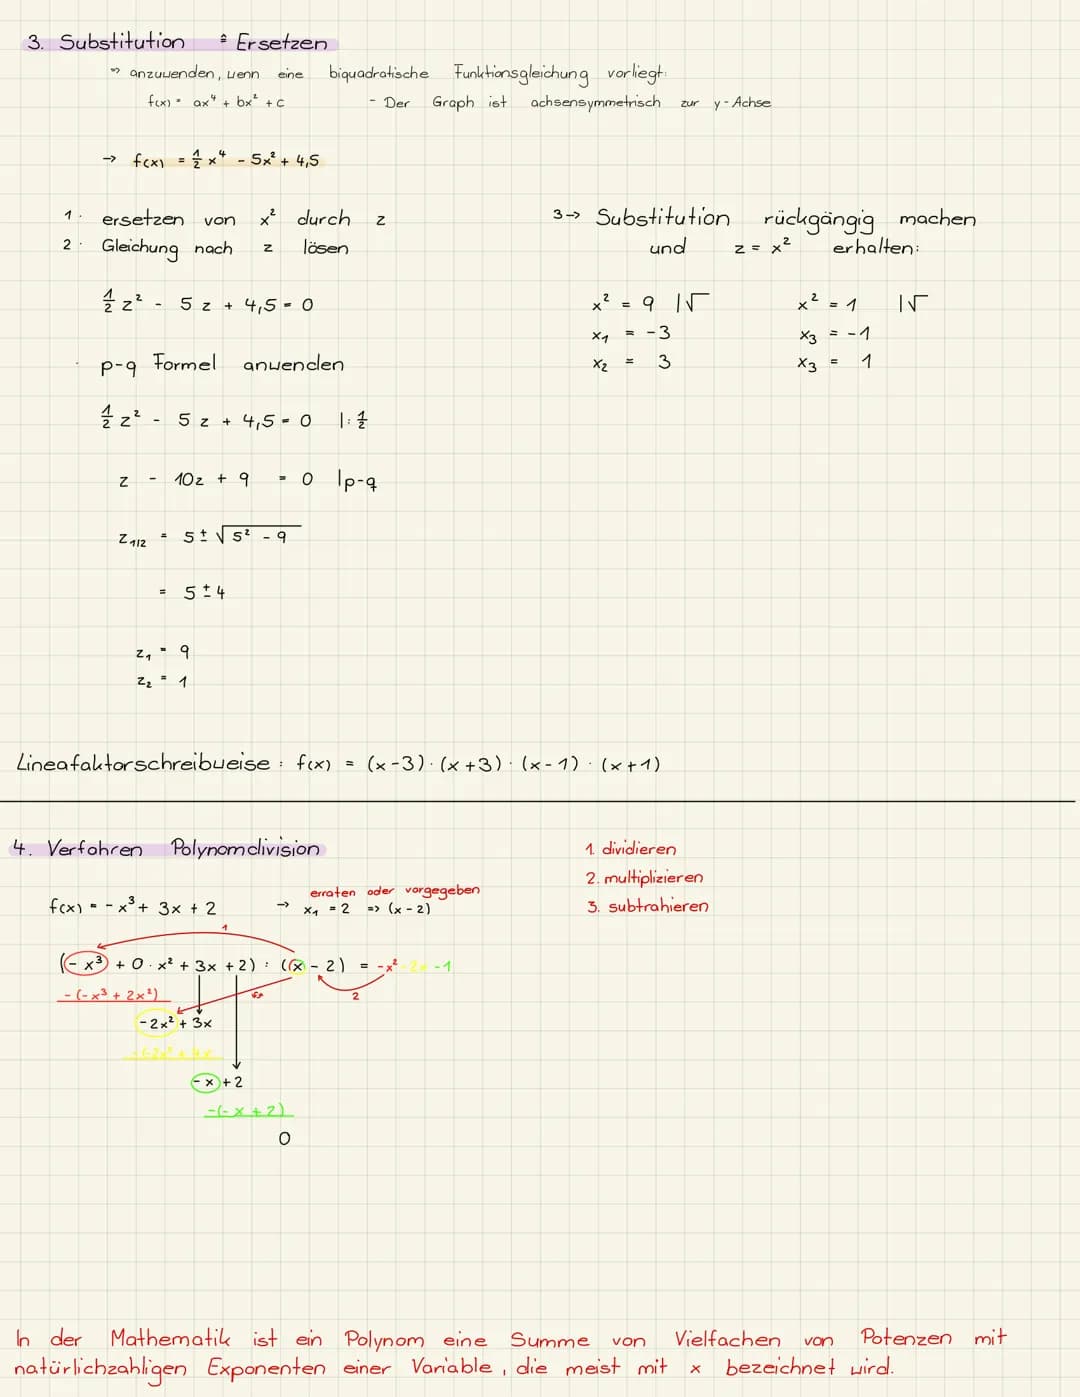 3. Substitution ≙ Ersetzen
⇒ anzuwenden, wenn eine biquadratische Funktionsgleichung vorliegt:
f(x) = ax⁴ + bx² + c - Der Graph ist achsensymmetrisch zur y-Achse
→ f(x) = 1/2 x⁴ - 5x² + 4,5
1. ersetzen von x² durch z
2. Gleichung nach z lösen
1/2 z² - 5z + 4,5 = 0
· p-q Formel anwenden
1/2 z² - 5z + 4,5 = 0 |: 1/2
z - 10z + 9 = 0 |p-q
z₁/₂ = 5 ± √5² - 9
= 5 ± 4
z₁ = 9
z₂ = 1
3→ Substitution rückgängig machen
und z = x² erhalten:
x² = 9 |√ x² = 1 |√
x₁ = -3 x₃ = -1
x₂ = 3 x₃ = 1
Lineafaktorschreibweise : f(x) = (x-3)·(x+3)·(x-1)·(x+1)
4. Verfahren Polynomdivision
1. dividieren
2. multiplizieren
3. subtrahieren
erraten oder vorgegeben
f(x) = -x³ + 3x + 2 → x₁ = 2 => (x-2)
1
(-x³ + 0·x² + 3x + 2) : (x - 2) = -x² -2x -1
-(-x³ + 2x²)
2
-2x² + 3x
-(-2x² + 4x
-x + 2
-(-x + 2)
0
In der Mathematik ist ein Polynom eine Summe von Vielfachen von Potenzen mit
natürlichzahligen Exponenten einer Variable, die meist mit x bezeichnet wird.